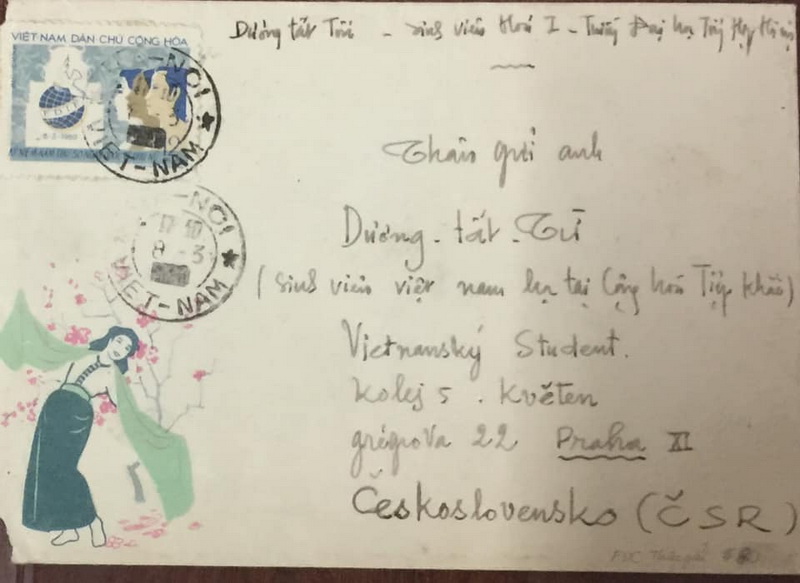 Dương tất Tài - sinh viên Hoá I - Trường Đại học Tổng Hợp Hà nội
VIỆT-NAM DÂN CHỦ CỘNG HÒA
FDIF
8-3-1960
HA-NOI
17-10
8-3
VIET-NAM
Thân gửi anh
Dương - tất - Từ
(sinh viên việt nam học tại Cộng hoà Tiệp khắc)
Vietnanský Student.
Kolej 5. Květen
grégrova 22 Praha XI
Československo (ČSR)